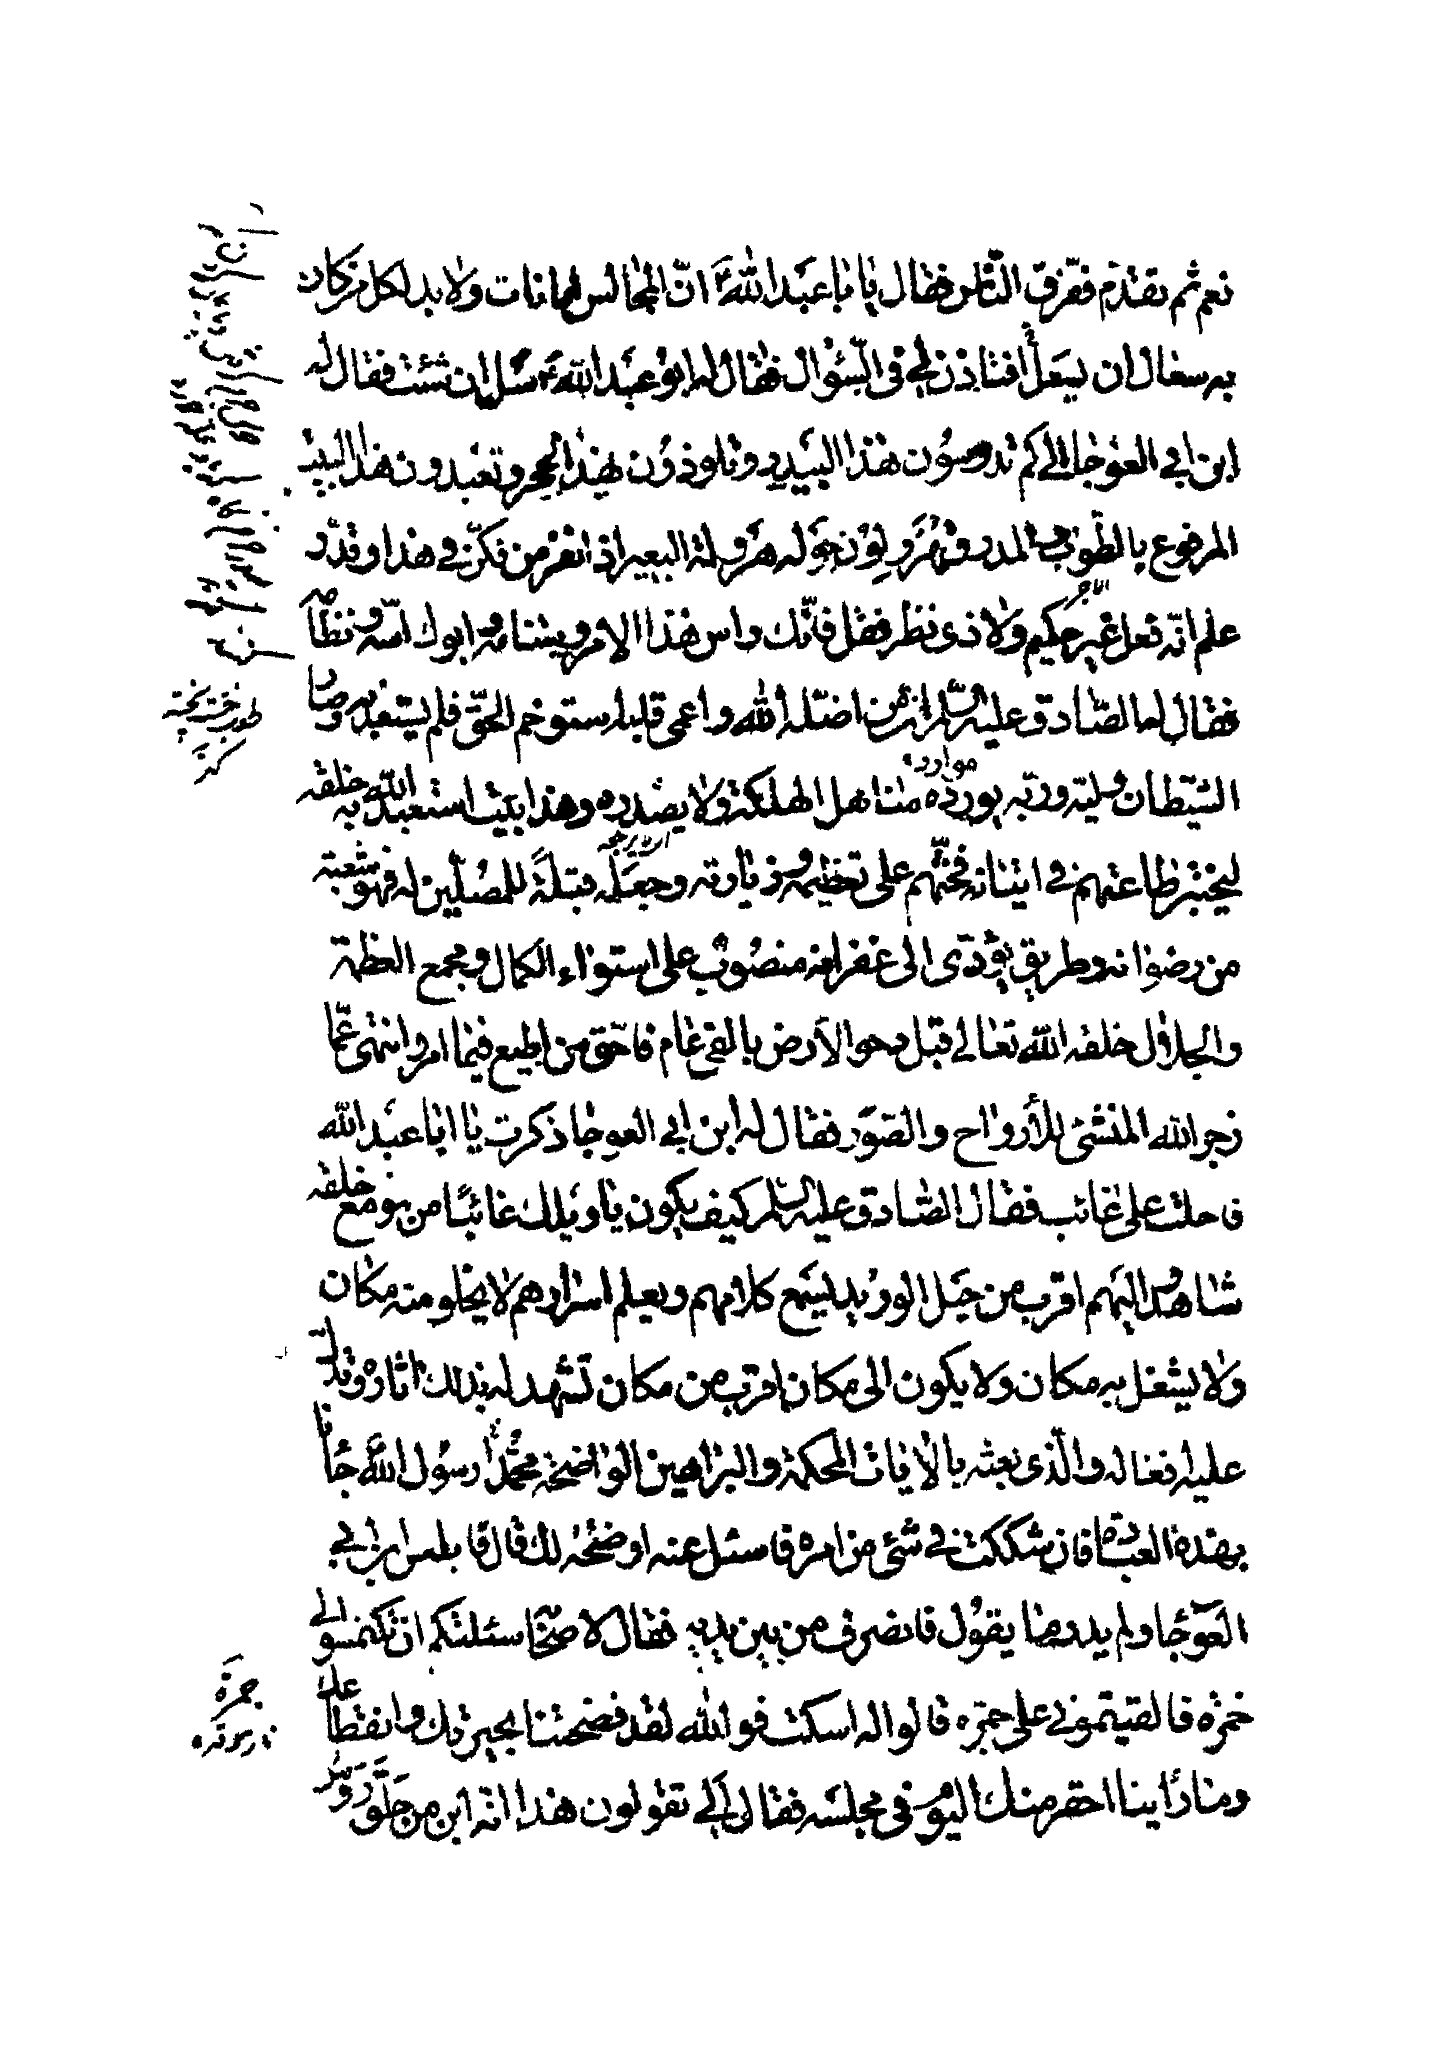 نعم ثم تقدّم ففرّق النّاس فقال يا ابا عبد الله ع انّ المجالس امانات ولا بد لكل من كان
به سعال ان يسعل أفتاذن لى فى السّؤال فقال له ابو عبد الله ع سل ان شئت فقال له
ابن ابى العوجا الى كم تدوسون هذا البيدر وتلوذون بهذا الحجر وتعبدون هذا البيت
المرفوع بالطّوب والمدر وتهرولون حوله هرولة البعير اذا نفر من فكّر فى هذا وقدّر
علم انّه فعل غير حكيم ولا ذى نظر فقل فانّك راس هذا الامر وسنامه وابوك اسّه ونظامه
فقال له الصّادق عليه السّلم ان من اضلّه الله واعمى قلبه استوخم الحقّ فلم يستعذبه وصار
الشيّطان وليّه وربّه يورده مناهل الهلكة ولا يصدره وهذا بيت استعبد الله به خلقه
موارد
ليختبر طاعتهم فى اتيانه فحثّهم على تعظيمه وزيارته وجعله قبلة للمصلّين له فهو شعبة
من رضوانه وطريق يؤدّى الى غفرانه منصوب على استواء الكمال ومجمع العظمة
والجلال خلقه الله تعالى قبل دحو الارض بالفى عام فاحق من اطيع فيما امر وانتهى عمّا
زجر الله المنشئ للأرواح والصّور فقال له ابن ابى العوجا ذكرت يا ابا عبد الله
فاحلت على غائب فقال الصّادق عليه السّلم كيف يكون يا ويلك غائبًا من هو مع خلقه
شاهد واليهم اقرب من حبل الوريد يسمع كلامهم ويعلم اسرارهم لا يخلو منه مكان
ولا يشغل به مكان ولا يكون الى مكان اقرب من مكان تشهد له بذلك اثاره وتدلّ
عليه افعاله والّذى بعثه بالايات المحكمة والبراهين الواضحة محمّد رسول الله جاءنا
بهذه العبادة فان شككت فى شئ من امره فاسئل عنه اوضحه لك قال فابلس ابن ابى
العوجا ولم يدر ما يقول فانصرف من بين يديه فقال لاصحابه سئلتكم ان تلتمسوا لى
خمرة فالقيتمونى على جمرة قالوا له اسكت فوالله لقد فضحتنا بحيرتك وانقطاعك
وما راينا احقر منك اليوم فى مجلسه فقال الى تقولون هذا انه ابن من حلق رؤس
طوب خشت پخته
جمرة